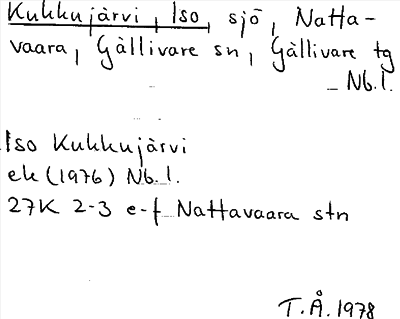 Kukkujärvi, Iso, sjö, Natta-
vaara, Gällivare sn, Gällivare tg
Nb.l.
Iso Kukkujärvi
ek (1976) Nb.l.
27K 2-3 e-f Nattavaara stn
T.Å. 1978